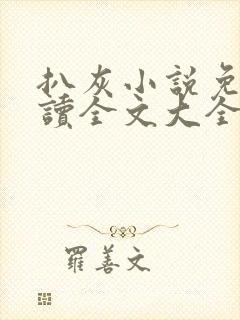 扒灰小説免
讀全文大全
羅善文